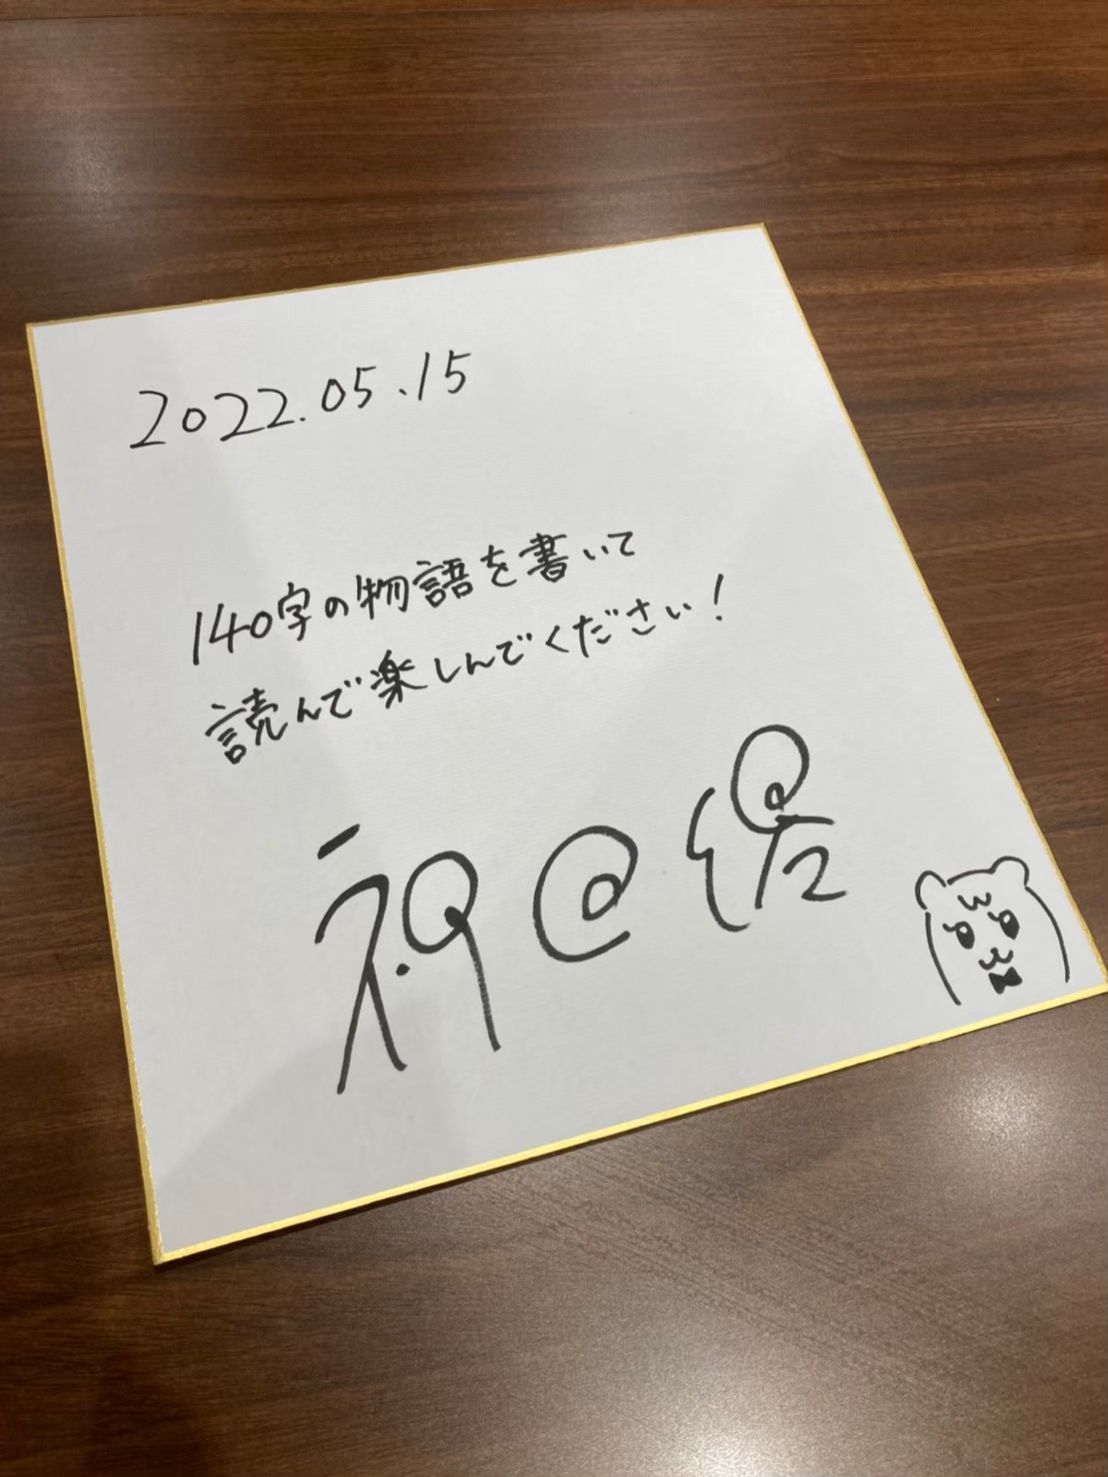 2022.05.15
140字の物語を書いて
読んで楽しんでください！